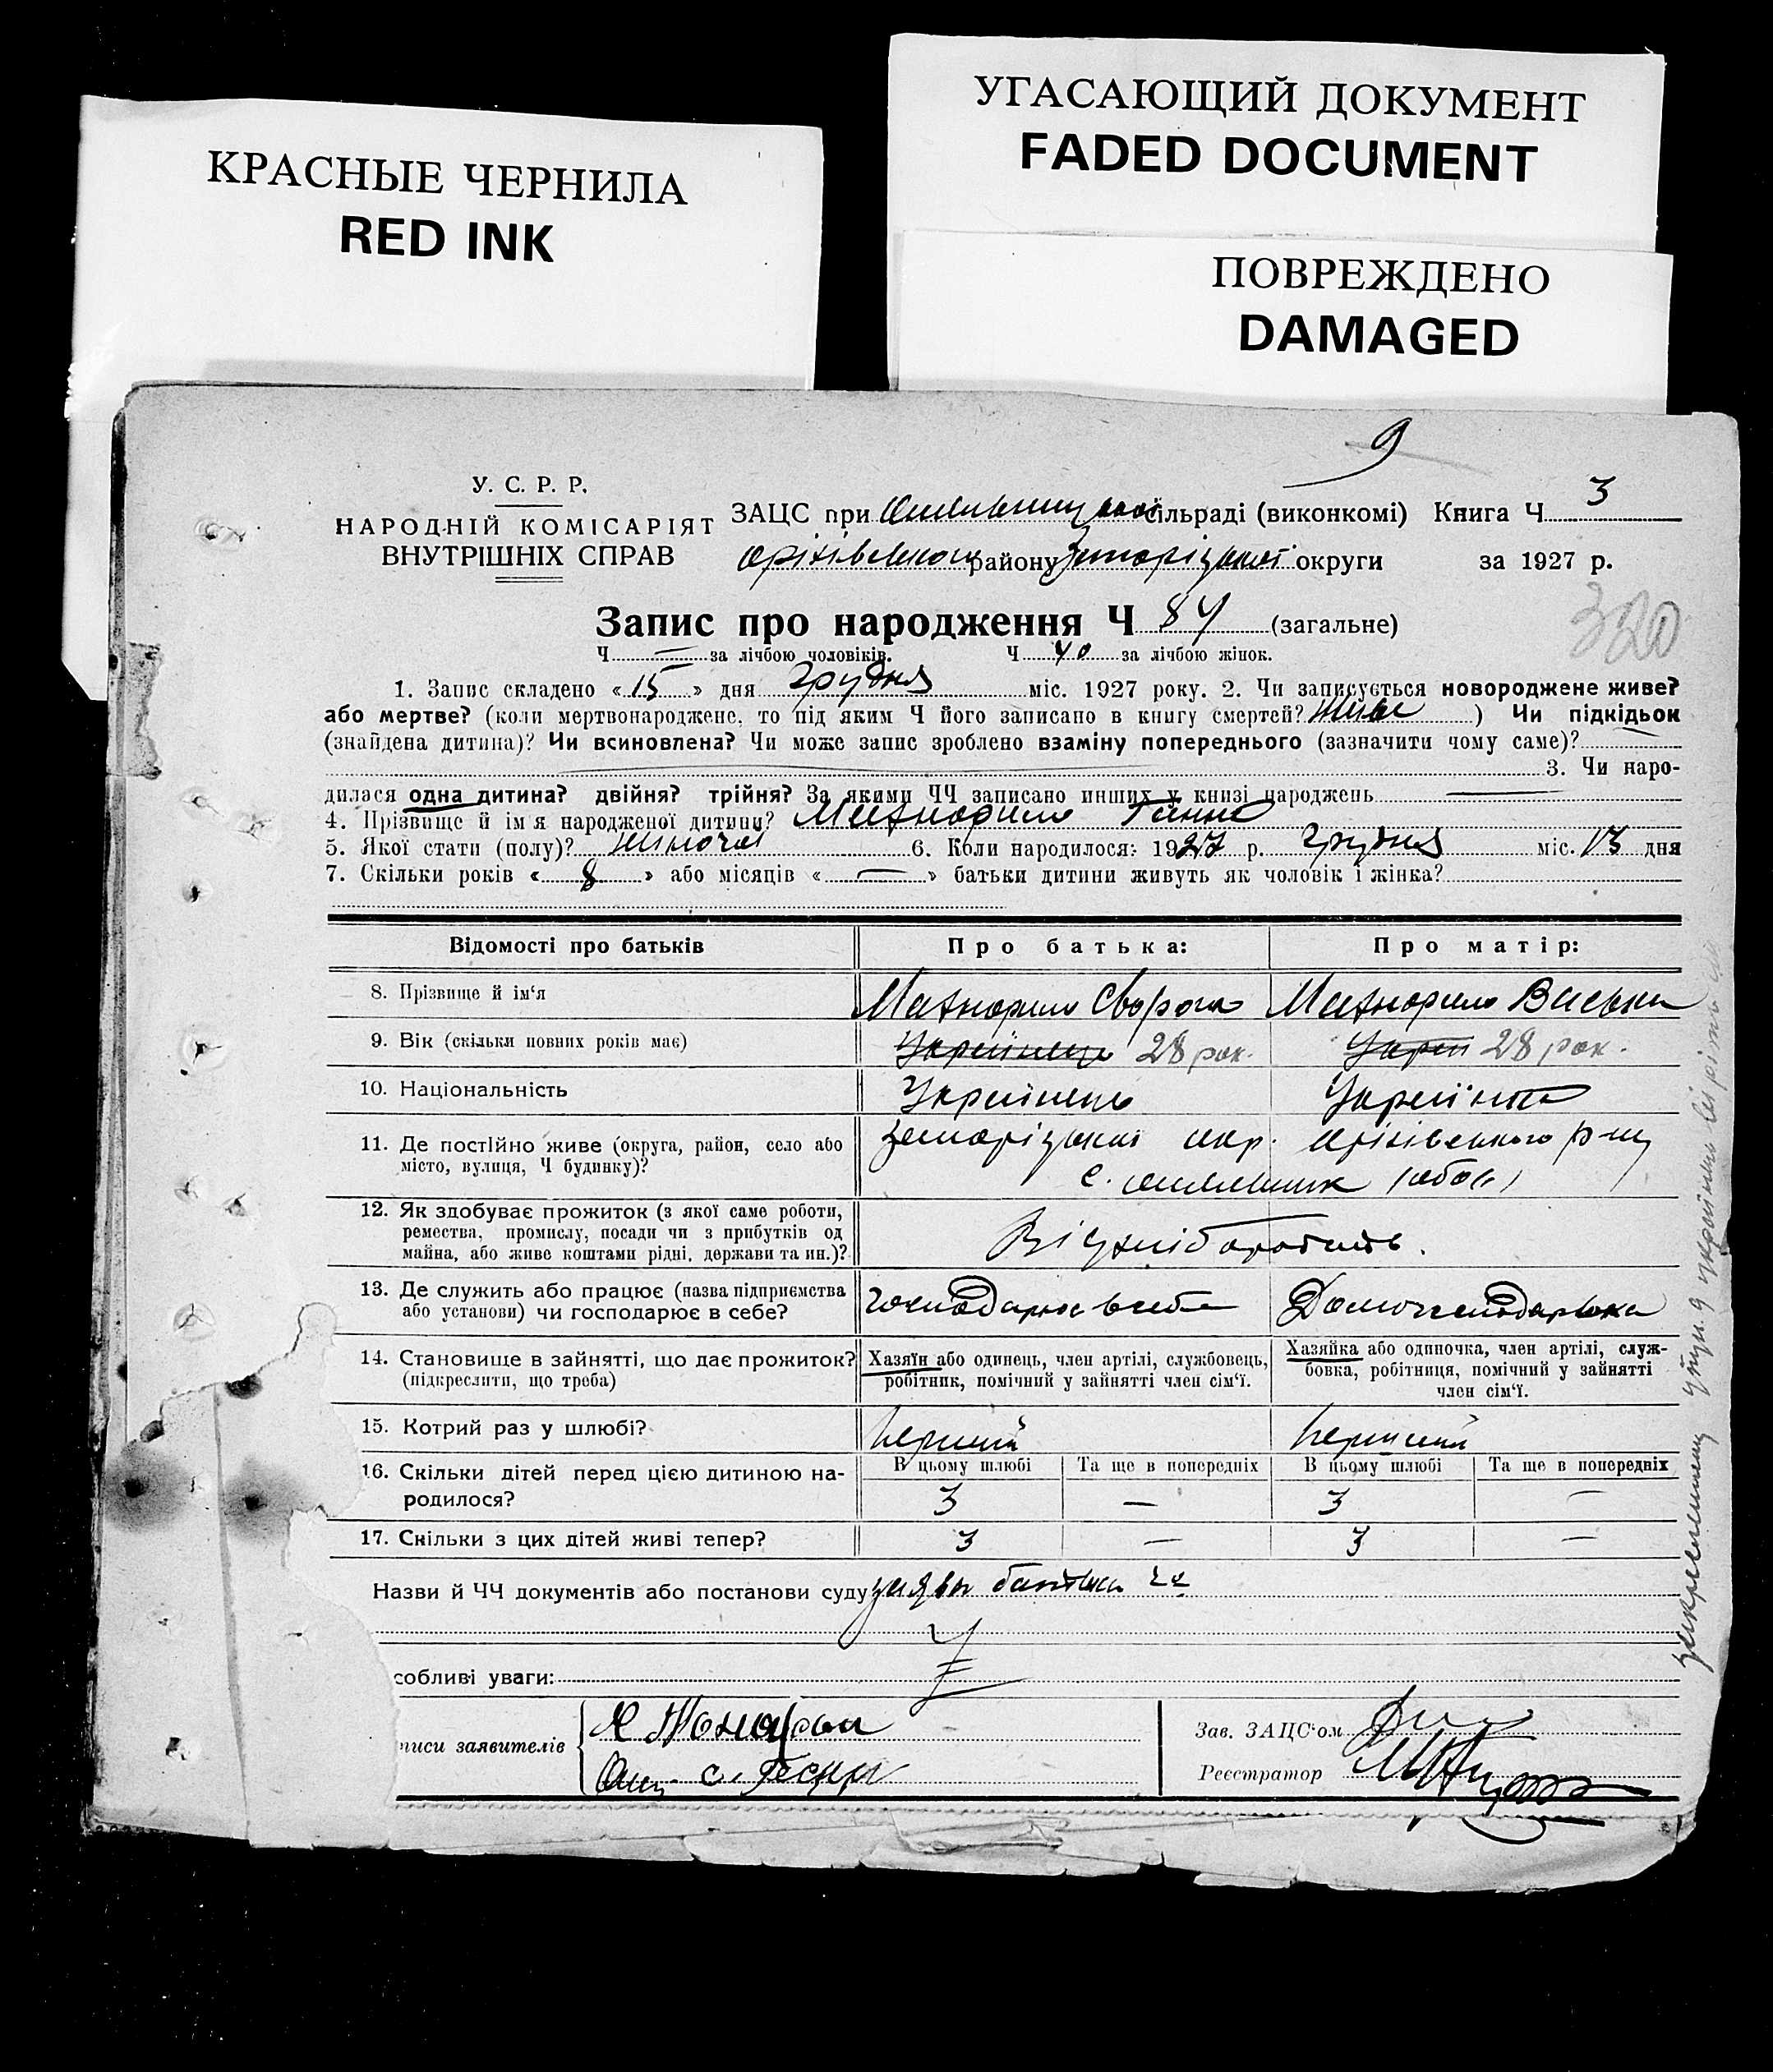 УГАСАЮЩИЙ ДОКУМЕНТ
FADED DOCUMENT
КРАСНЫЕ ЧЕРНИЛА
RED INK
ПОВРЕЖДЕНО
DAMAGED
9
У. С. Р. Р.
НАРОДНІЙ КОМІСАРІЯТ
ВНУТРІШНІХ СПРАВ
ЗАЦС при сільраді (виконкомі) Книга Ч 3
Оріхівського району Запорізької округи за 1927 р.
320
Запис про народження Ч 84 (загальне)
Ч — за лічбою чоловіків. Ч 40 за лічбою жінок.
1. Запис складено « 15 » дня Грудня міс. 1927 року. 2. Чи записується новороджене живе?
або мертве? (коли мертвонароджене, то під яким Ч його записано в книгу смертей? Живе ) Чи підкідьок
(знайдена дитина)? Чи всиновлена? Чи може запис зроблено взаміну попереднього (зазначити чому саме)?
3. Чи наро-
дилася одна дитина? двійня? трійня? За якими ЧЧ записано инших у книзі народжень —
4. Прізвище й ім'я народженої дитини? Ганна
5. Якої стати (полу)? жіночої 6. Коли народилося: 1927 р. Грудня міс. 13 дня
7. Скільки років « 8 » або місяців « — » батьки дитини живуть як чоловік і жінка?
Відомості про батьків Про батька: Про матір:
8. Прізвище й ім'я
9. Вік (скільки повних років має) Українець 28 рок. Украї 28 рок.
10. Національність Українець Українка
11. Де постійно живе (округа, район, село або
місто, вулиця, Ч будинку)? Запорізької окр. Оріхівського р-ну
с.
12. Як здобуває прожиток (з якої саме роботи,
ремества, промислу, посади чи з прибутків од
майна, або живе коштами рідні, держави та ин.)?
Від хліборобства.
13. Де служить або працює (назва підприємства
або установи) чи господарює в себе? господарює в себе Домогосподарка
14. Становище в зайнятті, що дає прожиток?
(підкреслити, що треба)
Хазяїн або одинець, член артілі, службовець,
робітник, помічний у зайнятті член сім'ї.
Хазяйка або одиночка, член артілі, служ-
бовка, робітниця, помічний у зайнятті
член сім'ї.
15. Котрий раз у шлюбі? перший перший
16. Скільки дітей перед цією дитиною на-
родилося?
В цьому шлюбі Та ще в попередніх В цьому шлюбі Та ще в попередніх
3 — 3 —
17. Скільки з цих дітей живі тепер? 3 — 3 —
Назви й ЧЧ документів або постанови суду заява батька
собливі уваги:
писи заявителів
Зав. ЗАЦС'ом
Реєстратор